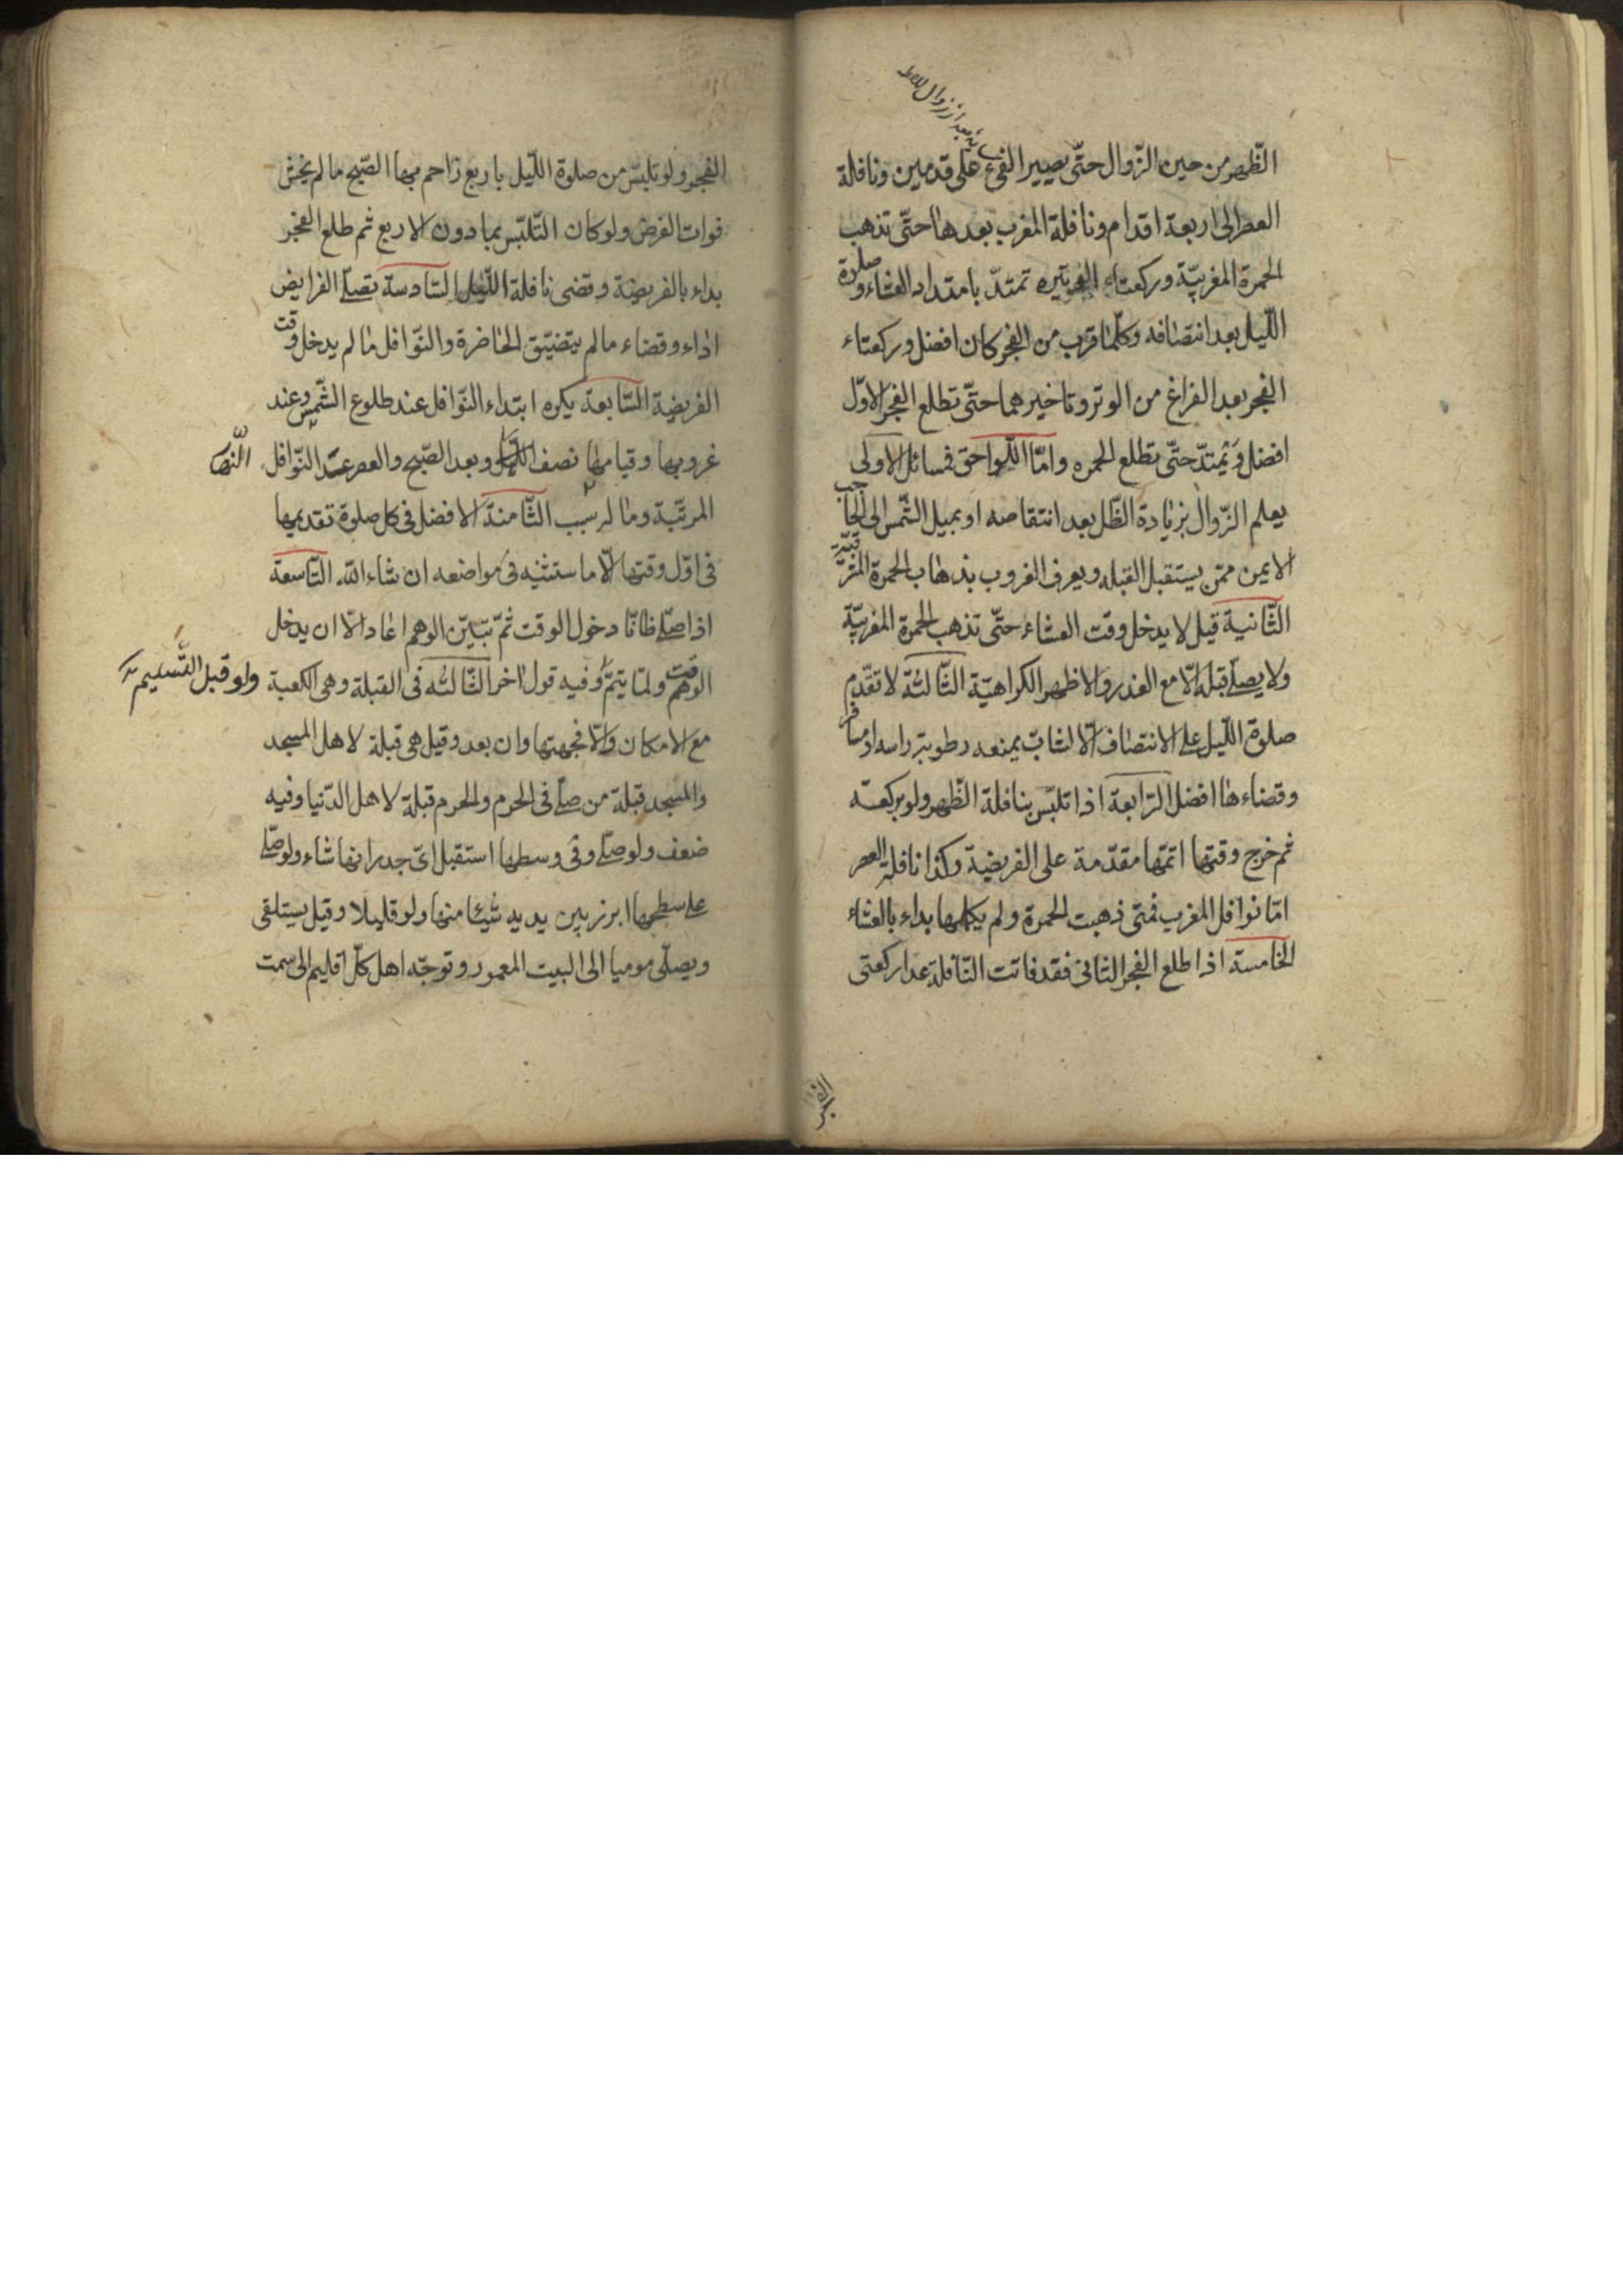 الظّهر من حين الزّوال حتّى يصير الفئ على قدمين ونافلة
العصر الى اربعة اقدام ونافلة المغرب بعدها حتّى تذهب
الحمرة المغربيّة وركعتاء الوتيره تمتدّ بامتداد العشاء وصلوة
اللّيل بعد انتصافه وكلّما قرب من الفجر كان افضل وركعتاء
الفجر بعد الفراغ من الوتر وتاخيرهما حتّى تطلع الفجر الاوّل
افضل ويمتدّ حتّى تطلع الحمره وامّا اللّواحق فمسائل الاولى
يعلم الزّوال بزيادة الظّل بعد انتقاصه او بميل الشّمس الى الحاجب
الايمن ممّن يستقبل القبله ويعرف الغروب بذهاب الحمرة المشرقيّة
الثّانية قيل لا يدخل وقت العشاء حتّى تذهب الحمرة المغربيّة
ولا يصلّى قبله الّا مع العذر والاظهر الكراهيّة الثّالثة لا تقدّم
صلوة اللّيل على الانتصاف الّا لشابّ يمنعه رطوبة راسه او مسافر
وقضاءها افضل الرّابعة اذا تلبّس بنافلة الظّهر ولو بركعة
ثم خرج وقتها اتمّها مقدّمة على الفريضة وكذا نافلة العصر
امّا نوافل المغرب فمتى ذهبت الحمرة ولم يكملها بداء بالعشاء
الخامسة اذا طلع الفجر الثانى فقد فاتت النّافلة عدا ركعتى
الفجر
الفجر ولو تلبّس من صلوة اللّيل باربع زاحم بها الصّبح ما لم يخش
فوات الفرض ولو كان التّلبّس بمادون الاربع ثم طلع الفجر
بداء بالفريضة وقضى نافلة اللّيل السّادسة تصلّى الفرايض
اداء وقضاء ما لم يتضيّق الحاضرة والنّوافل ما لم يدخل وقت
الفريضة السّابعة يكره ابتداء النّوافل عند طلوع الشّمس وعند
غروبها وقيامها نصف النّهار وبعد الصّبح والعصر عدا النّوافل
المرتّبة وما له سبب الثّامنة الافضل فى كل صلوة تقديمها
فى اوّل وقتها الّا ما ستثنيه فى مواضعه ان شاء اللّه التّاسعة
اذا صلّى ظانّا دخول الوقت ثمّ تبيّن الوهم اعاد الّا ان يدخل
الوقت ولمّا يتمّ وفيه قول اخر الثّالثه فى القبلة وهى الكعبة
ولو قبل التّسليم
مع الامكان والّا فجهتها وان بعد وقيل هى قبلة لاهل المسجد
والمسجد قبلة من صلّى فى الحرم والحرم قبلة لاهل الدّنيا وفيه
ضعف ولو صلّى وفى وسطها استقبل اىّ جدرانها شاء ولو صلّى
على سطحها ابرز بين يديه شيئا منها ولو قليلا وقيل يستلقى
ويصلّى موميا الى البيت المعمور وتوجّه اهل كلّ اقليم الى سمت